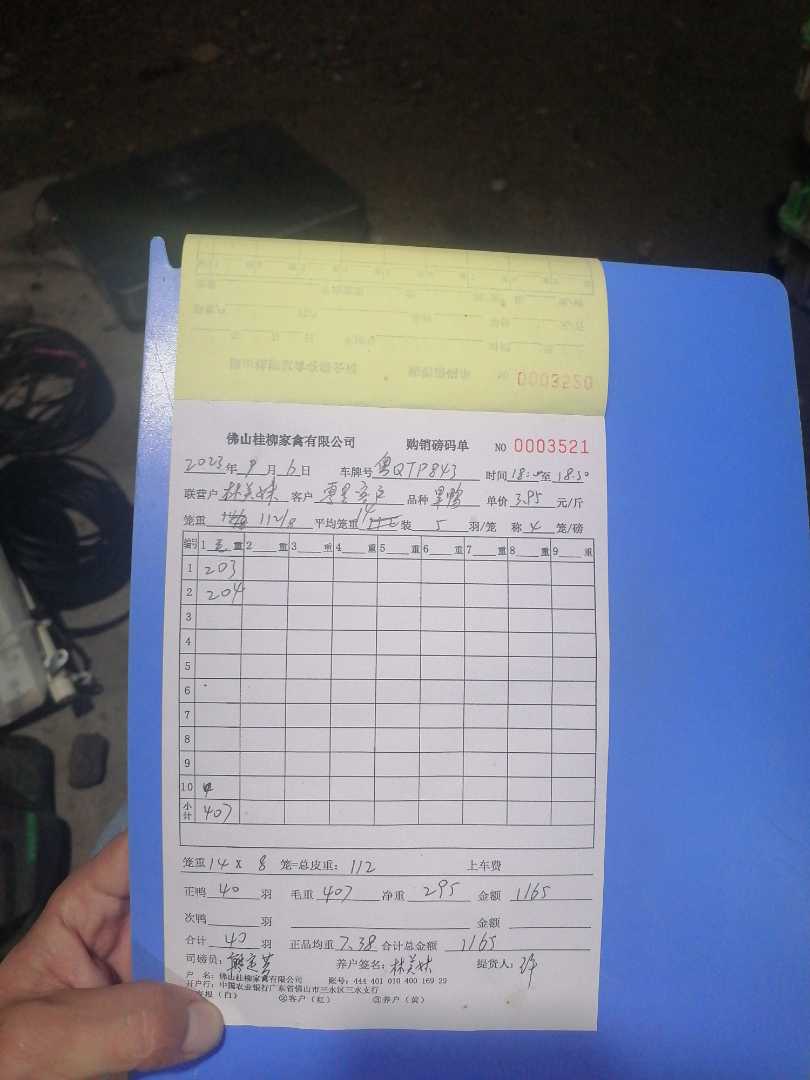 0003520
佛山桂柳家禽有限公司 购销磅码单 NO 0003521
2023年9月6日 车牌号粤QTP843 时间18:00至18:30
联营户林美妹 客户 品种 单价3.95元/斤
笼重 112/8 平均笼重14装5羽/笼 称4笼/磅
编号 1 毛 重 2 重 3 重 4 重 5 重 6 重 7 重 8 重 9 重
1 203
2 204
3
4
5
6
7
8
9
10
小计 407
笼重14×8笼=总皮重:112 上车费
正鸭40羽 毛重407净重295金额1165
次鸭 羽 金额
合计40羽 正品均重7.38合计总金额1165
司磅员: 养户签名:林美妹 提货人:许
户 名:佛山桂柳家禽有限公司 账号:444 401 010 400 169 29
开户行:中国农业银行广东省佛山市三水区三水支行
(白) ②客户(红) ③养户(黄)